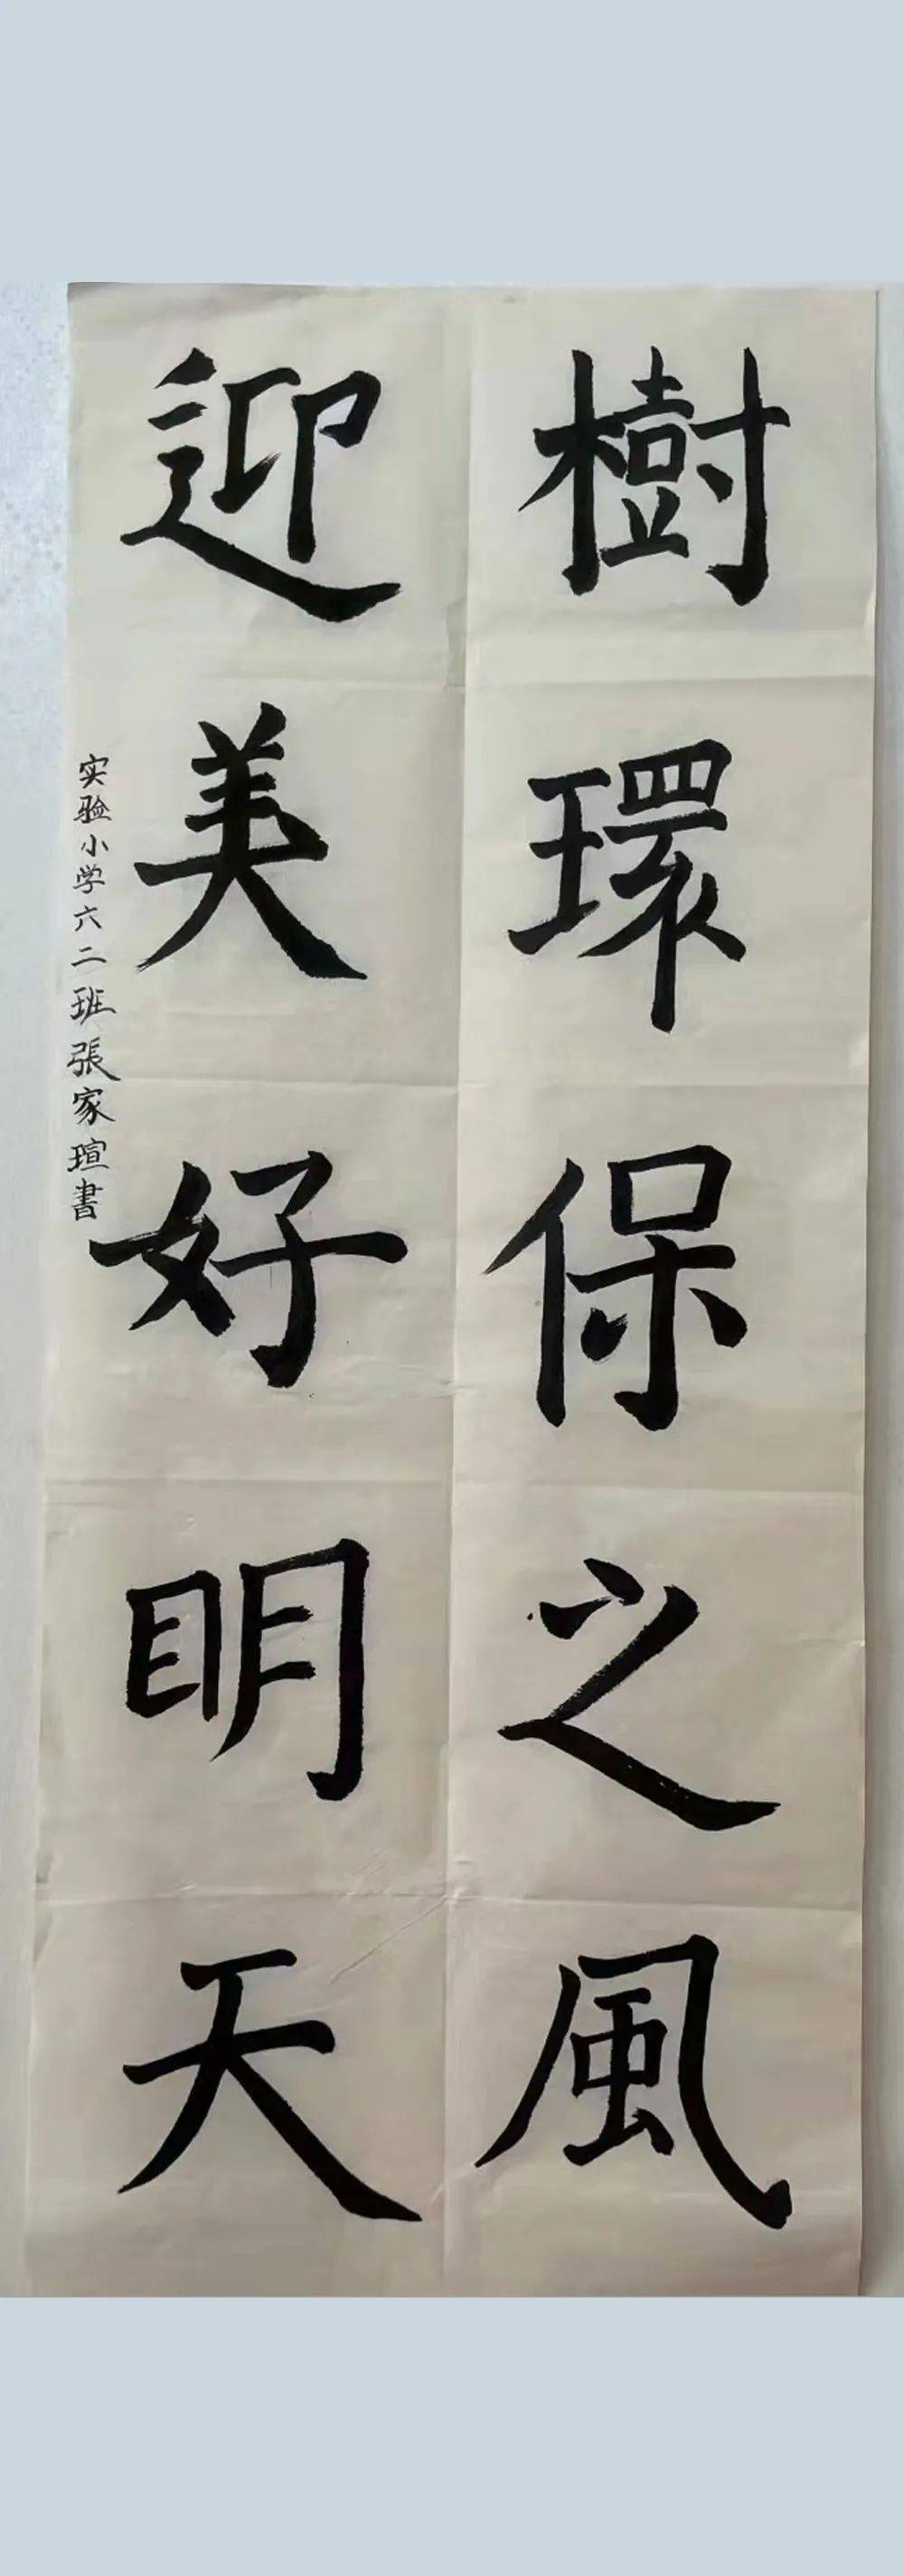 樹環保之風
迎美好明天
实验小学六二班張家瑄書